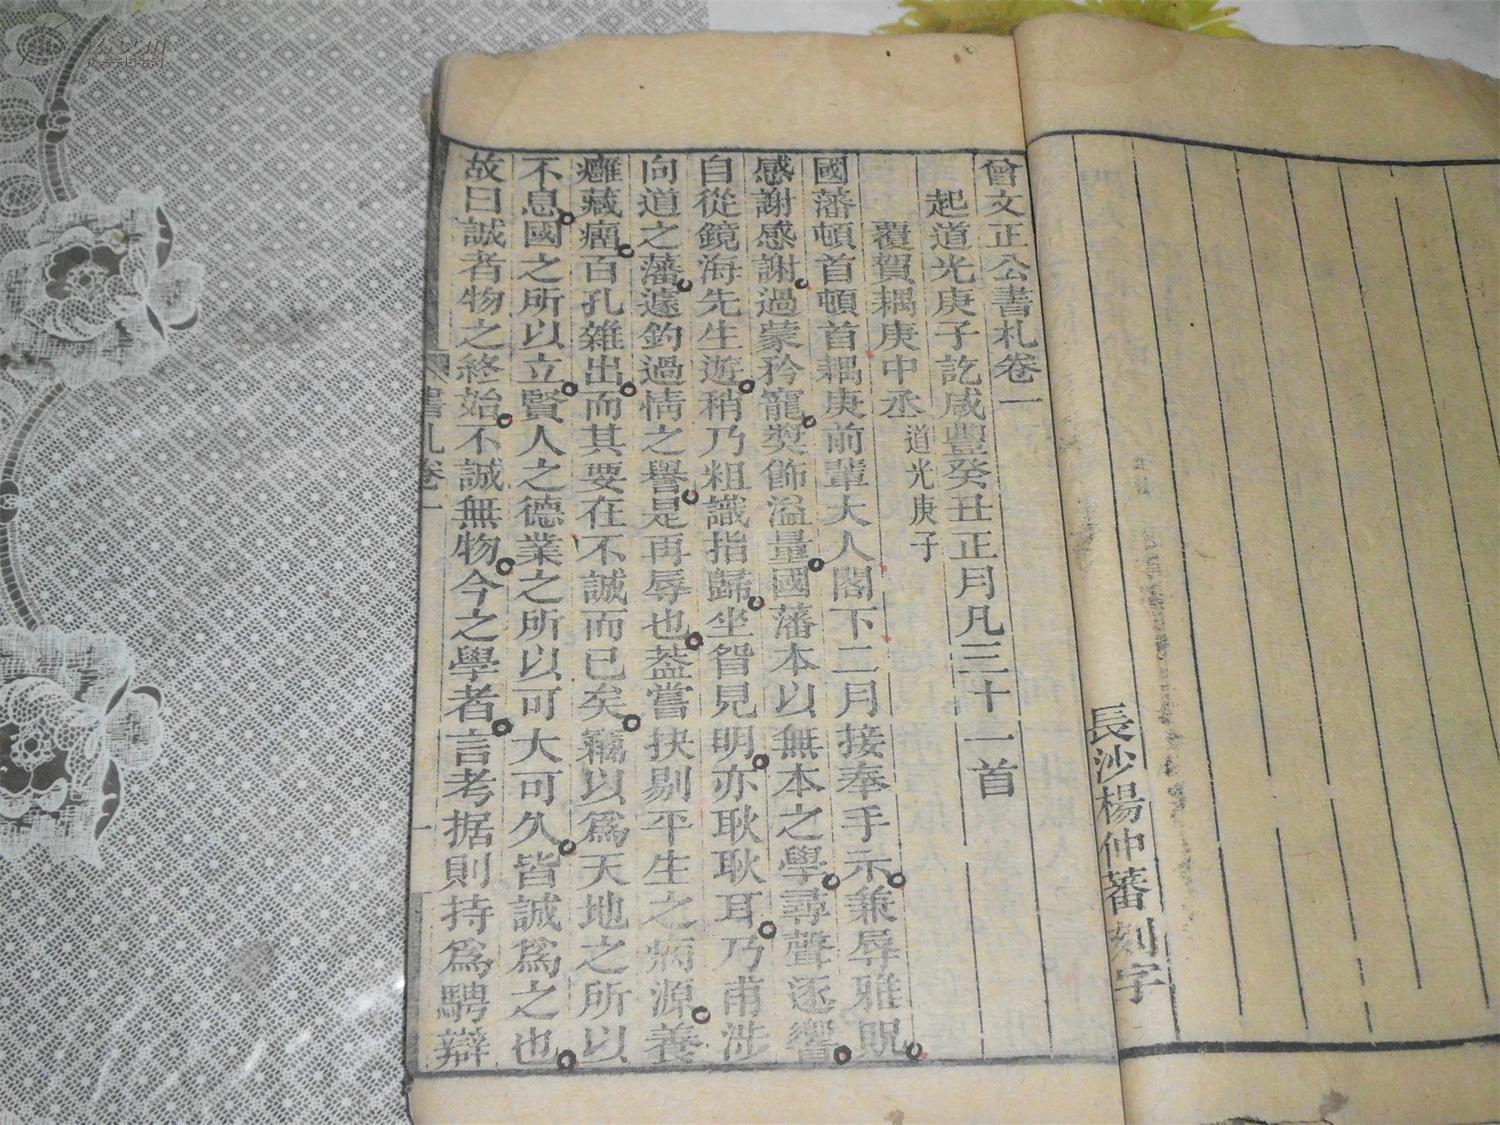 長沙楊仲蕃刻字
曾文正公書札卷一
起道光庚子訖咸豐癸丑正月凡三十一首
覆賀耦庚中丞道光庚子
國藩頓首頓首耦庚前輩大人閣下二月接奉手示兼辱雅貺
感謝感謝過蒙矜寵奬飾溢量國藩本以無本之學尋聲逐響
自從鏡海先生遊稍乃粗識指歸坐眢見明亦耿耿耳乃甫涉
向道之藩遽釣過情之譽是再辱也蓋嘗抉剔平生之病源養
癰藏瘤百孔雜出而其要在不誠而已矣竊以爲天地之所以
不息國之所以立賢人之德業之所以可大可久皆誠爲之也
故曰誠者物之終始不誠無物今之學者言考据則持爲騁辯
書札卷一
一